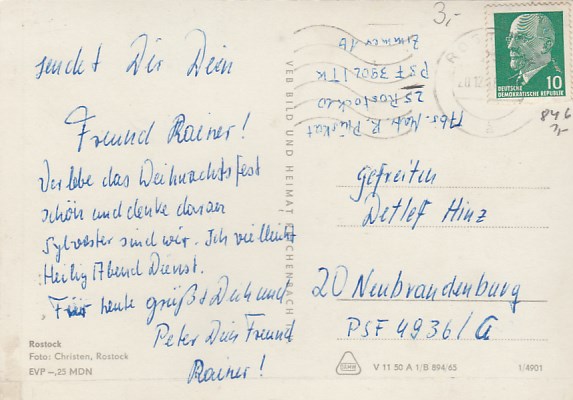 sendet Dir Dein
Freund Rainer!
Verlebe das Weihnachtsfest
schön und denke daran
Sylvester sind wir. Ich vielleicht
Heilig Abend Dienst.
Für heute grüßt Dich und
Peter Dein Freund
Rainer!
Rostock
Foto: Christen, Rostock
EVP –,25 MDN
VEB BILD UND HEIMAT REICHENBACH
Abs. Matr. R.
25 Rostock
PSF 3902 ITK
Zimmer 16
3,-
DEUTSCHE
DEMOKRATISCHE REPUBLIK
10
846
3,-
Gefreiten
Detlef Hinz
20 Neubrandenburg
PSF 4936/A
V 11 50 A 1/B 894/65
1/4901